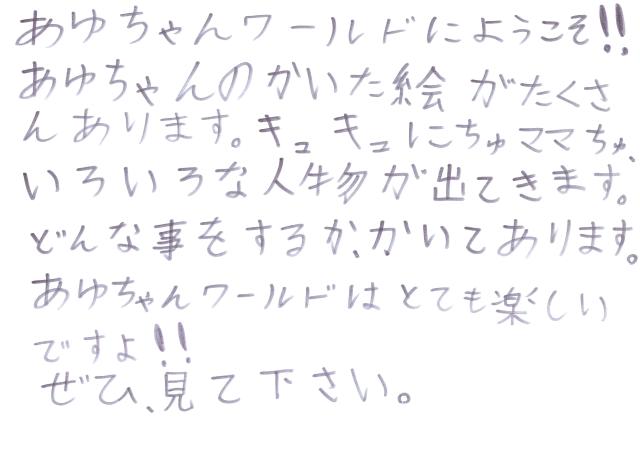 あゆちゃんワールドにようこそ!!
あゆちゃんのかいた絵がたくさ
んあります。キュキュにちゅママちゅ、
いろいろな人物が出てきます。
どんな事をするか、かいてあります。
あゆちゃんワールドはとても楽しい
ですよ!!
ぜひ、見て下さい。